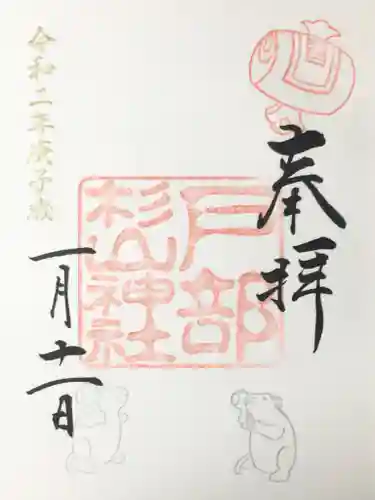 奉拝
戸部
杉山神社
令和二年庚子歳
一月十一日